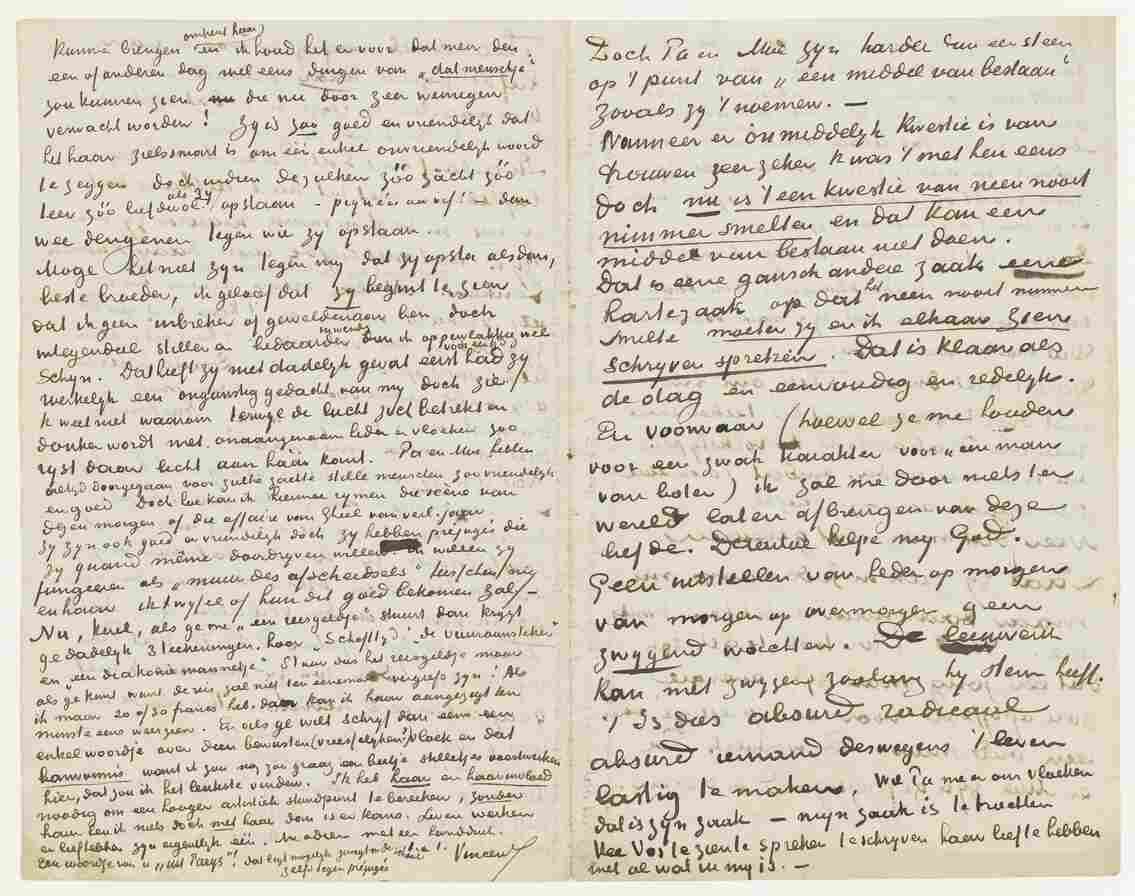 omtrent haar
kunnen brengen en ik houd het er voor dat men den
een of anderen dag wel eens dingen van „dat menschje”
zou kunnen zien die nu door zeer weinigen
verwacht worden! Zij is zoo goed en vriendelijk dat
het haar zielssmart is om één enkel onvriendelijk woord
te zeggen doch indien dezulken zóó zacht zóó
teer zóó liefdevol als zy opstaan – piqués au vif! – dan
wee dengenen tegen wie zy opstaan.
Moge het niet zyn tegen my dat zy opsta alsdan,
beste broeder, ik geloof dat zy begint te zien
dat ik geen inbreker of geweldenaar ben doch
integendeel stiller en bedaarder inwendig dan ik oppervlakkig wel
schyn. Dat heeft zy niet dadelyk gevat eerst had zy
werkelyk een ongunstig gedacht van my doch zie
ik weet niet waarom terwyl de lucht zich betrekt en
donker wordt met onaangenaamheden en vloeken zoo
ryst daar licht aan háár kant. Pa en Moe hebben
altyd doorgegaan voor zulke zachte stille menschen zoo vriendelyk
en goed Doch hoe kan ik hiermee rymen die scène van
dezen morgen of die affaire van Gheel van verl. jaar
Zy zyn ook goed en vriendelyk doch zy hebben préjugés die
zy quand même doordryven willen en willen zy
fungeeren als „muur des afscheidsels” tusschen my
en haar ik twyfel of hun dit goed bekomen zal –
Nu, kerel, als ge me „een reisgeldje” stuurt dan krygt
ge dadelyk 3 teekeningen. hoor „Schafttyd” „de vuuraansteker”
en „een diakoniemannetje” Stuur dus het reisgeldje maar
als ge kunt want de reis zal niet ten eenemale vergeefs zyn! Als
ik maar 20 of 30 francs heb. dan kan ik haar aangezigt ten
minste eens weerzien. En als ge wilt schryf dan eens een
enkel woordje over dien bewusten (vreesselyken?) vloek en dat
bannvonnis want ik zou nog zoo graag een beetje stilletjes voortwerken
hier, dat zou ik het liefste vinden. Ik heb haar en haar invloed
noodig om een hooger artistiek standpunt te bereiken, zonder
haar ben ik niets doch met haar dan is er kans. Leven werken
en liefhebben zyn eigenlyk één. Nu adieu met een handdruk.
t. à t. Vincent
Een woordje van u „uit Parys”! Dat legt mogelyk gewigt in de schaal
zelfs tegen préjugés

Doch Pa en Moe zyn harder dan een steen
op 't punt van „een middel van bestaan”
zooals zy 't noemen. –
Wanneer er onmiddelyk kwestie is van
trouwen zeer zeker ik was 't met hen eens
doch nu is 't een kwestie van neen nooit
nimmer smelten en dat kan een
middel van bestaan niet doen.
Dat is eene gansch andere zaak eene
hartezaak op dat het neen nooit nimmer
smelte moeten zy en ik elkaar zien
schryven spreken. Dat is klaar als
de dag en eenvoudig en redelyk.
En voorwaar (hoewel ze me houden
voor een zwak karakter voor „een man
van boter) ik zal me door niets ter
wereld laten afbrengen van deze
liefde. Dertoe helpe my God.
Geen uitstellen van heden op morgen
van morgen op overmorgen geen
zwygend wachten. De leeuwerik
kan niet zwygen zoolang hy stem heeft.
't Is dus absurd radicaal
absurd iemand deswegens 't leven
lastig te maken. Wil Pa me er om vloeken
dat is zyn zaak – myn zaak is te trachten
Kee Vos te zien te spreken te schryven haar lief te hebben
met al wat in my is. –